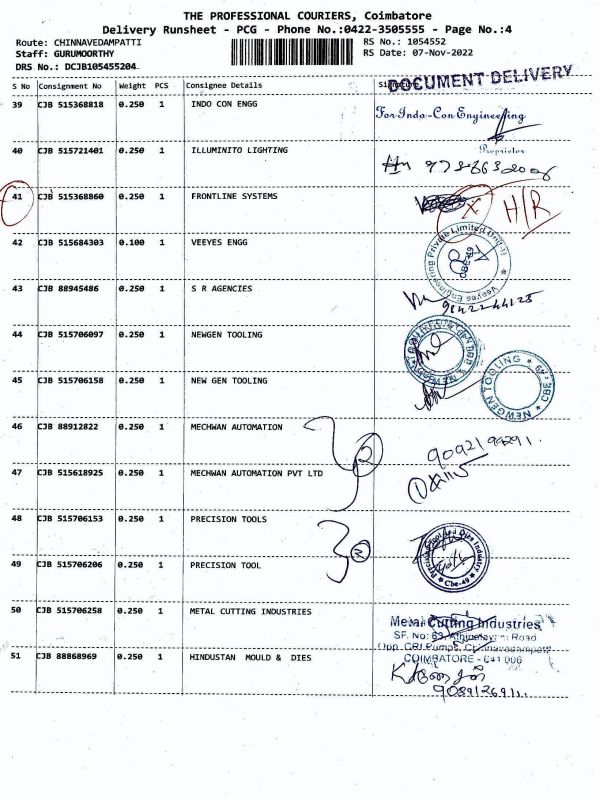 THE PROFESSIONAL COURIERS, Coimbatore
Delivery Runsheet - PCG - Phone No.:0422-3505555 - Page No.:4
Route: CHINNAVEDAMPATTI
RS No.: 1054552
Staff: GURUMOORTHY
RS Date: 07-Nov-2022
DRS No.: DCJB105455204
DOCUMENT DELIVERY
S No Consignment No Weight PCS Consignee Details
39 CJB 515368818 0.250 1 INDO CON ENGG
For Indo-Con Engineering
Proprietor
40 CJB 515721401 0.250 1 ILLUMINITO LIGHTING
41 CJB 515368860 0.250 1 FRONTLINE SYSTEMS
X H/R
42 CJB 515684303 0.100 1 VEEYES ENGG
Veeyes Engineering Private Limited Unit-II
43 CJB 88945486 0.250 1 S R AGENCIES
44 CJB 515706097 0.250 1 NEWGEN TOOLING
45 CJB 515706158 0.250 1 NEW GEN TOOLING
NEWGEN TOOLING * CBE - 49 *
46 CJB 88912822 0.250 1 MECHWAN AUTOMATION
2
47 CJB 515618925 0.250 1 MECHWAN AUTOMATION PVT LTD
48 CJB 515706153 0.250 1 PRECISION TOOLS
2
49 CJB 515706206 0.250 1 PRECISION TOOL
Cbe-49
50 CJB 515706258 0.250 1 METAL CUTTING INDUSTRIES
Metal Cutting Industries
SF. No: 63, Road
Opp. CRI Pumps, Chinnavedampatti
COIMBATORE - 641 006
51 CJB 88868969 0.250 1 HINDUSTAN MOULD & DIES